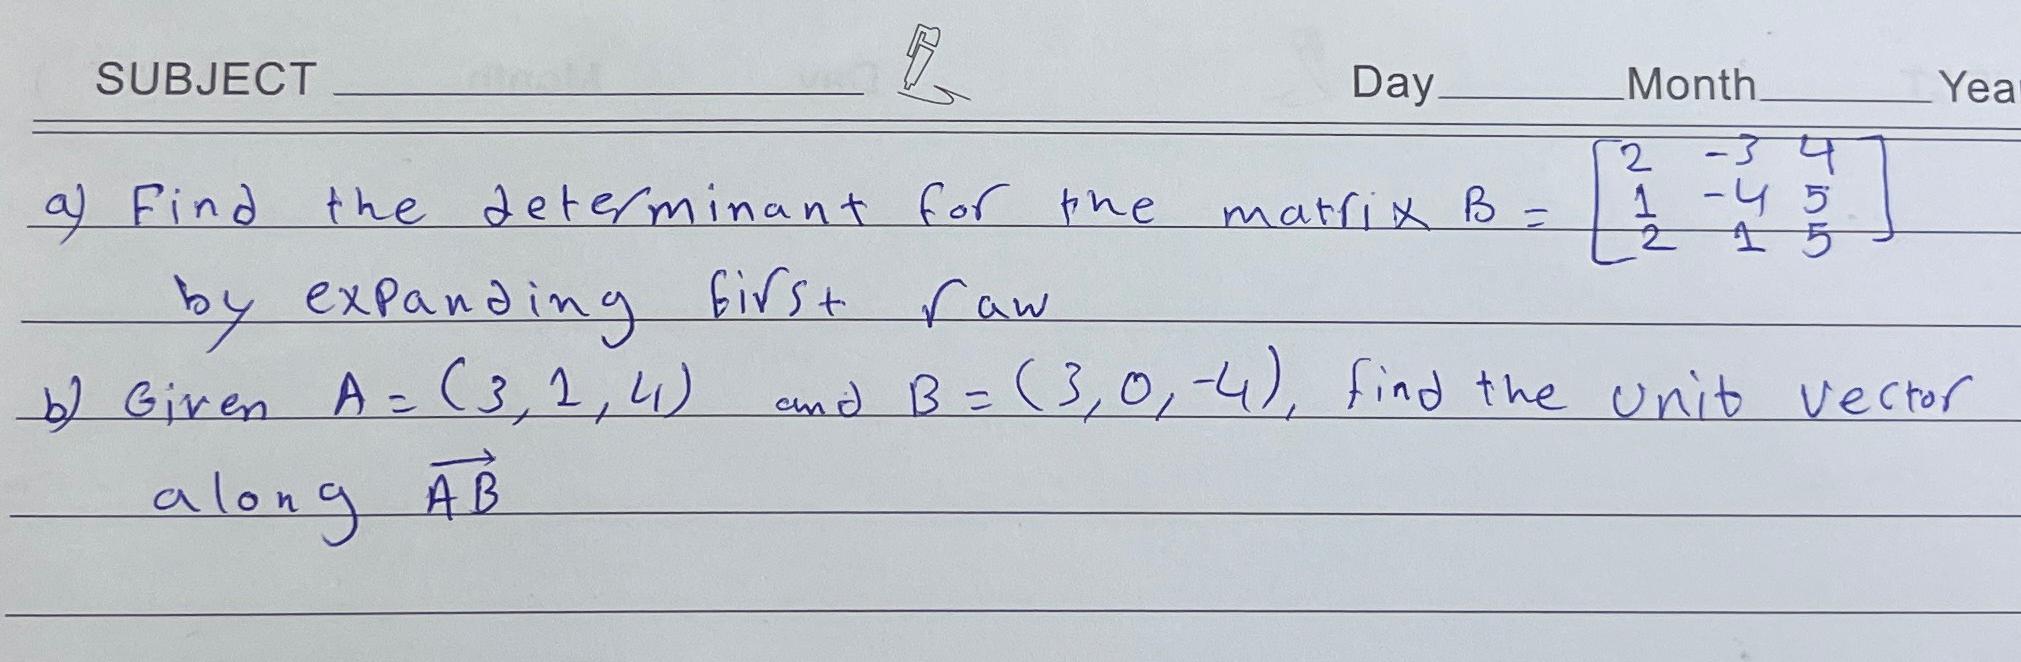 SUBJECT Day Month Yea
a) Find the determinant for the matrix B = [2 -3 4
1 -4 5
2 1 5]
by expanding first raw
b) Given A = (3, 1, 4) and B = (3, 0, -4), find the unit vector
along AB